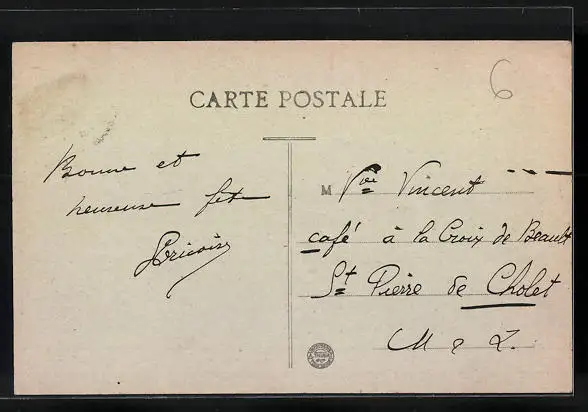 CARTE POSTALE
6
Bonne et
heureuse fête
M Vve Vincent
café à la Croix de Beault
St Pierre de Cholet
M & L.